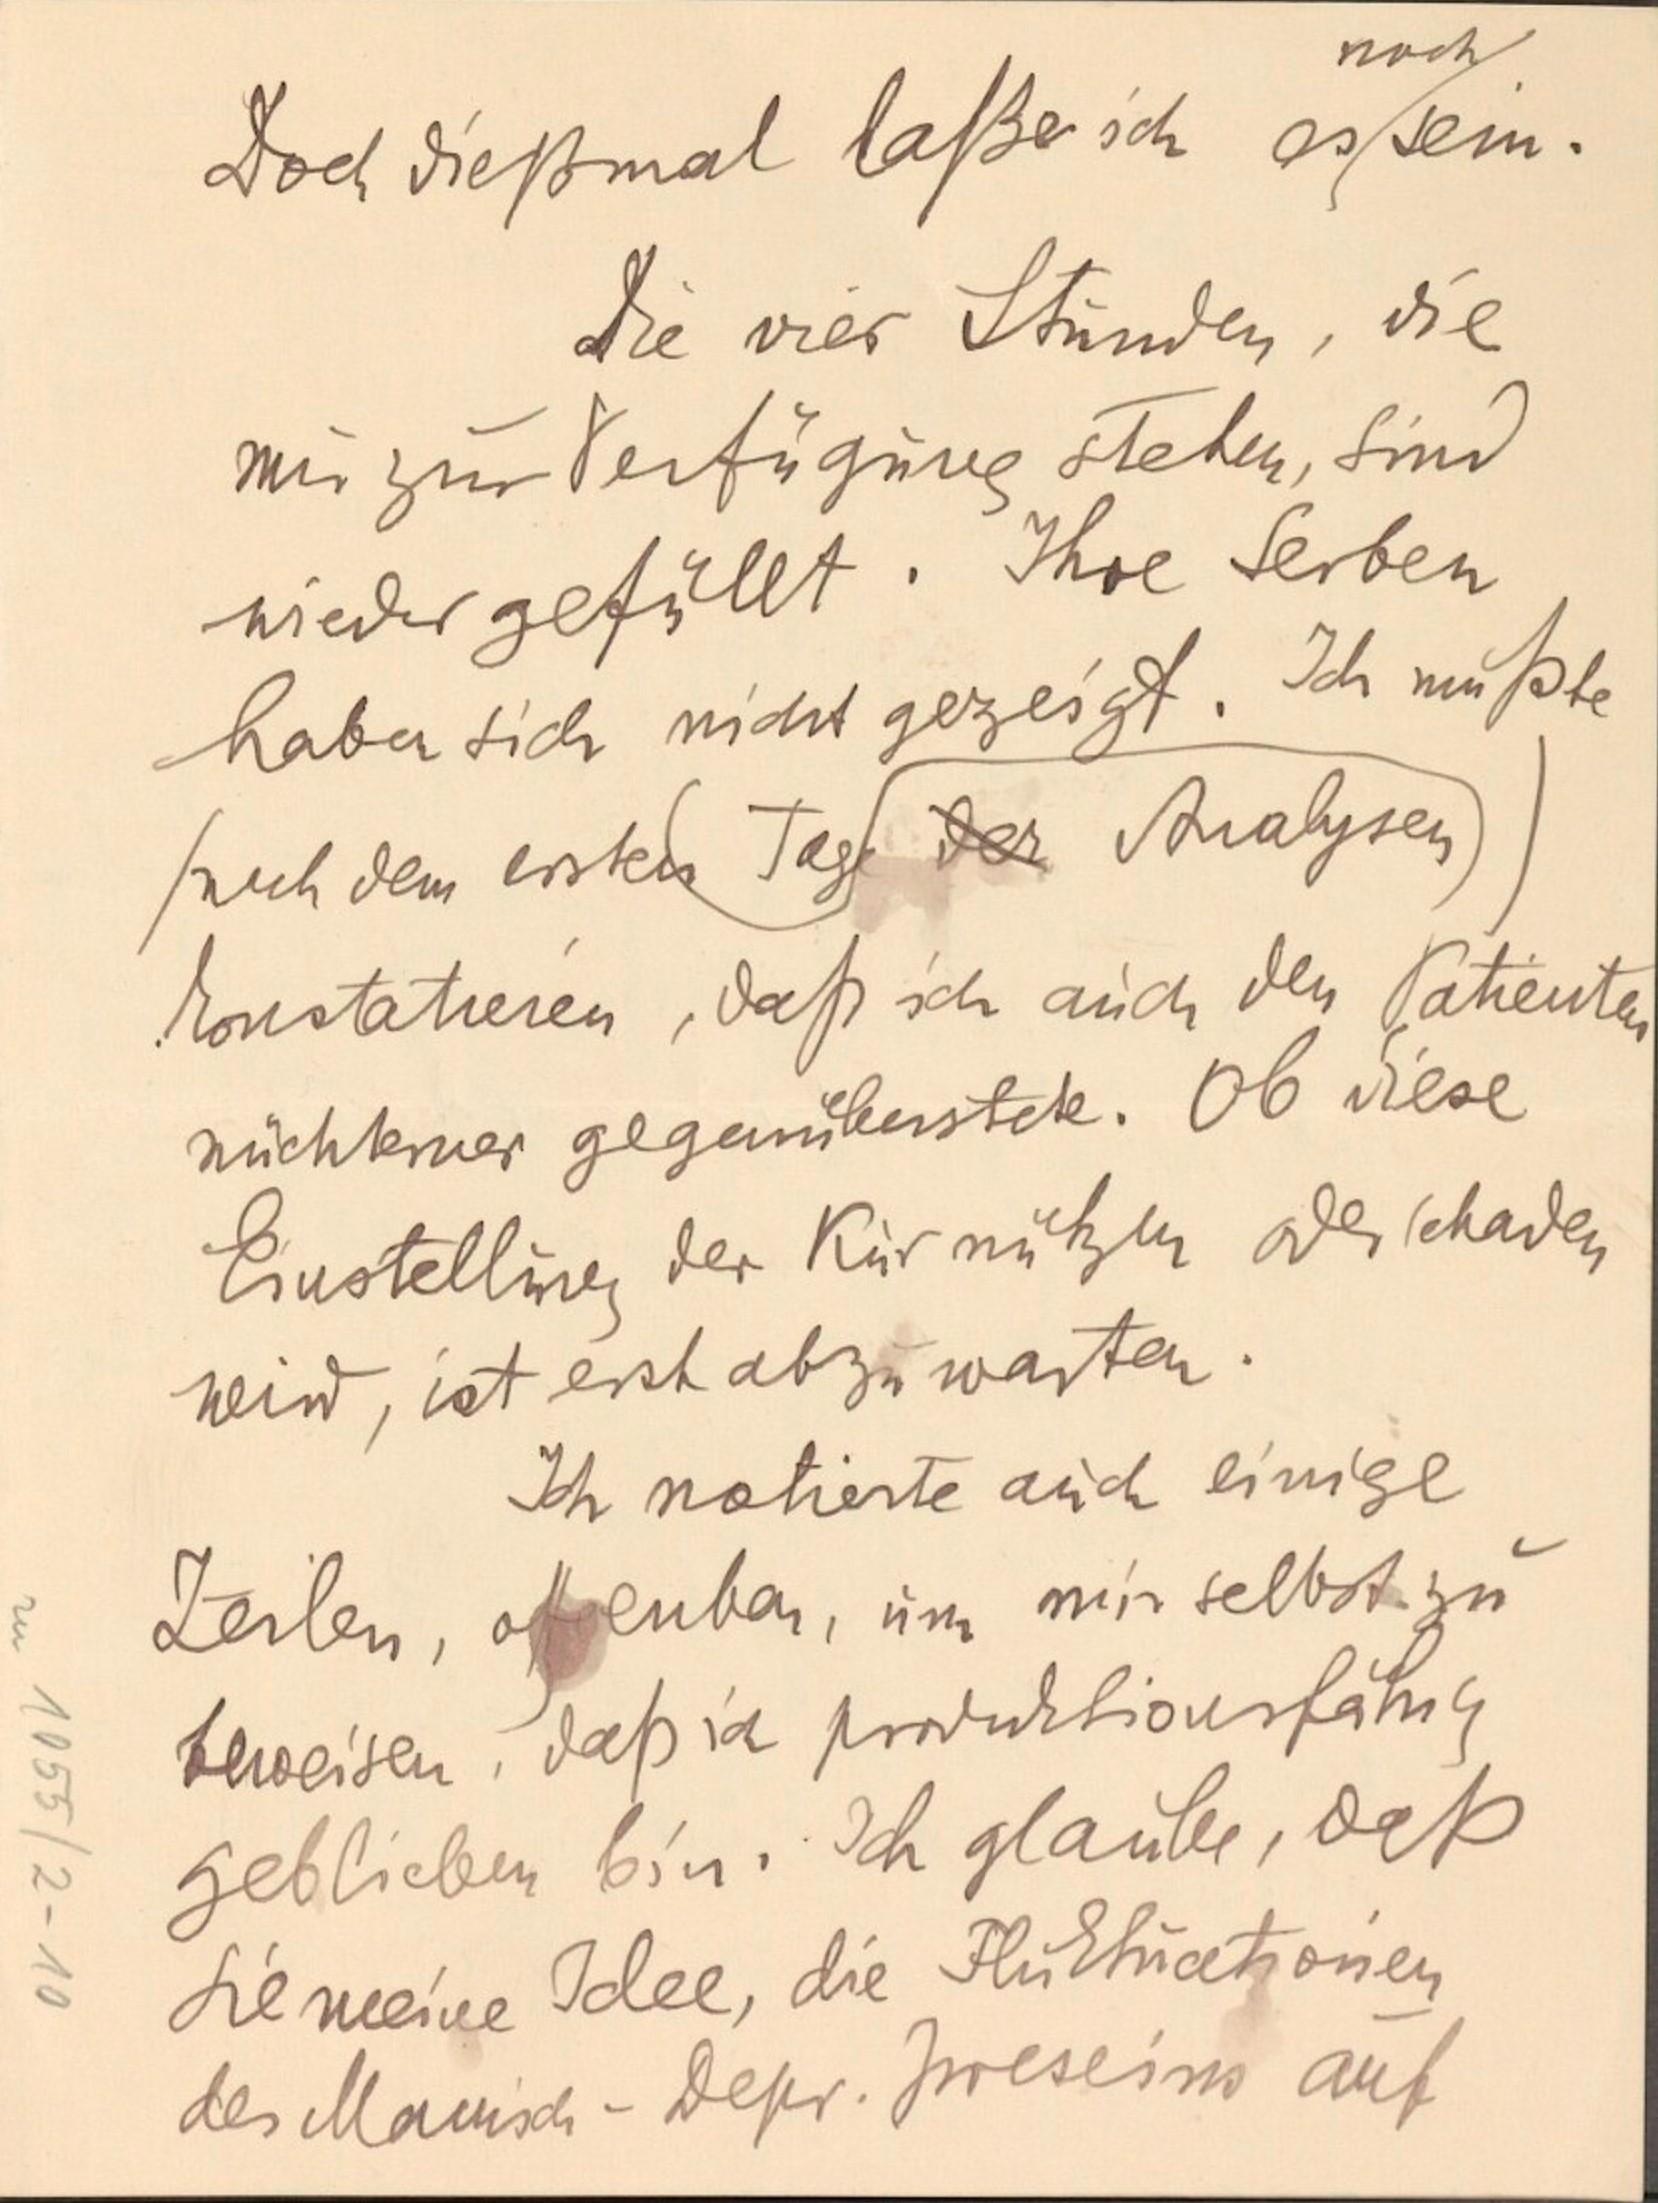 noch
Doch dießmal laße ich es sein.
Die vier Stunden, die
mir zur Verfügung stehen, sind
wieder gefüllt. Ihre Serben
haben sich nicht gezeigt. Ich mußte
(nach dem ersten Tage der Analysen)
konstatieren, daß ich auch den Patienten
nüchterner gegenüberstehe. Ob diese
Einstellung der Kur nützen oder schaden
wird, ist erst abzuwarten.
Ich notierte auch einige
Zeilen, offenbar, um mir selbst zu
beweisen, daß ich produktionsfähig
geblieben bin. Ich glaube, daß
Sie meine Idee, die Fluktuationen
des Manisch-Depr. Irreseins auf
m 1055/2-10